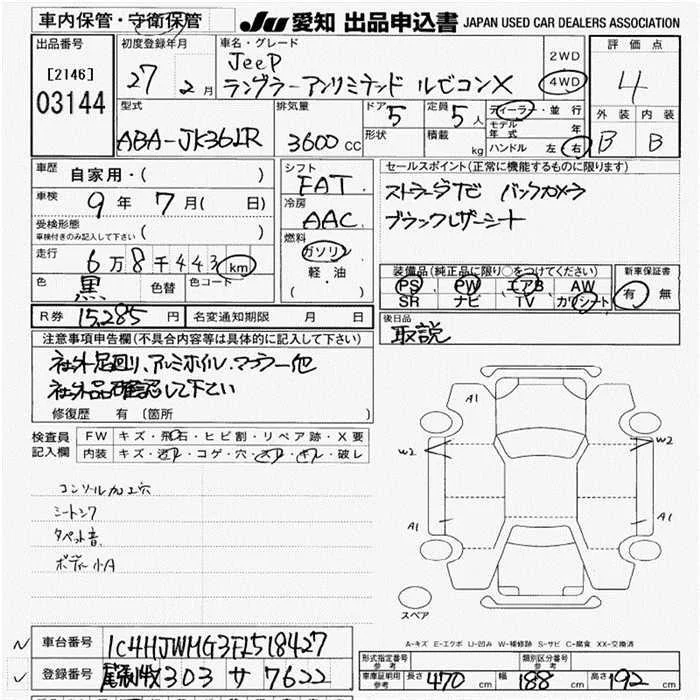 車内保管・守衛保管 JU 愛知 出品申込書 JAPAN USED CAR DEALERS ASSOCIATION
出品番号 [2146] 03144
初度登録年月 27 2月
車名・グレード Jeep ラングラーアンリミテッド ルビコンX
2WD 4WD
評価点 4
外装 内装 B B
型式 ABA-JK36LR
排気量 3600cc
ドア 5
形状
定員 5人
積載 kg
ディーラー・並行
モデル年式 年
ハンドル 左 右
車歴 自家用・( )
車検 9年 7月( 日)
受検形態
車検付きのみ記入して下さい ( )
走行 6万8千443 km
色 黒 色替 色コード
シフト FAT
冷房 AAC
燃料 ガソリン
軽・油
( )
セールスポイント(正常に機能するものに限ります)
ストラーダTビ バックカメラ
ブラックレザーシート
装備品(純正品に限り○をつけてください)
PS PW エアB AW
SR ナビ TV カワシート
新車保証書
有 無
R券 15,285円 名変通知期限 月 日
後日品 取説
注意事項申告欄(不具合内容等は具体的に記入して下さい)
社外足回り、アルミホイル、マフラー他
社外品確認して下さい
修復歴 有 (箇所 )
検査員記入欄
FW キズ・飛石・ヒビ割・リペア跡・X要
内装 キズ・汚レ・コゲ・穴・スレ・キレ・破レ
コンソール加工穴
シートシワ
タペット音
ボディー小A
A1
W2 W2
A1 A1
スペア
A-キズ E-エクボ U-凹み W-補修跡 S-サビ C-腐食 XX-交換済
車台番号 1C4HJWMG3FL518427
登録番号 尾張小牧 303 サ 7622
形式指定番号 参考
類別区分番号 参考
車庫証明用 参考 長さ 470cm 幅 188cm 高さ 192cm